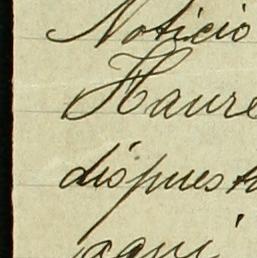 Noticio
Haure
dispuest
aqui